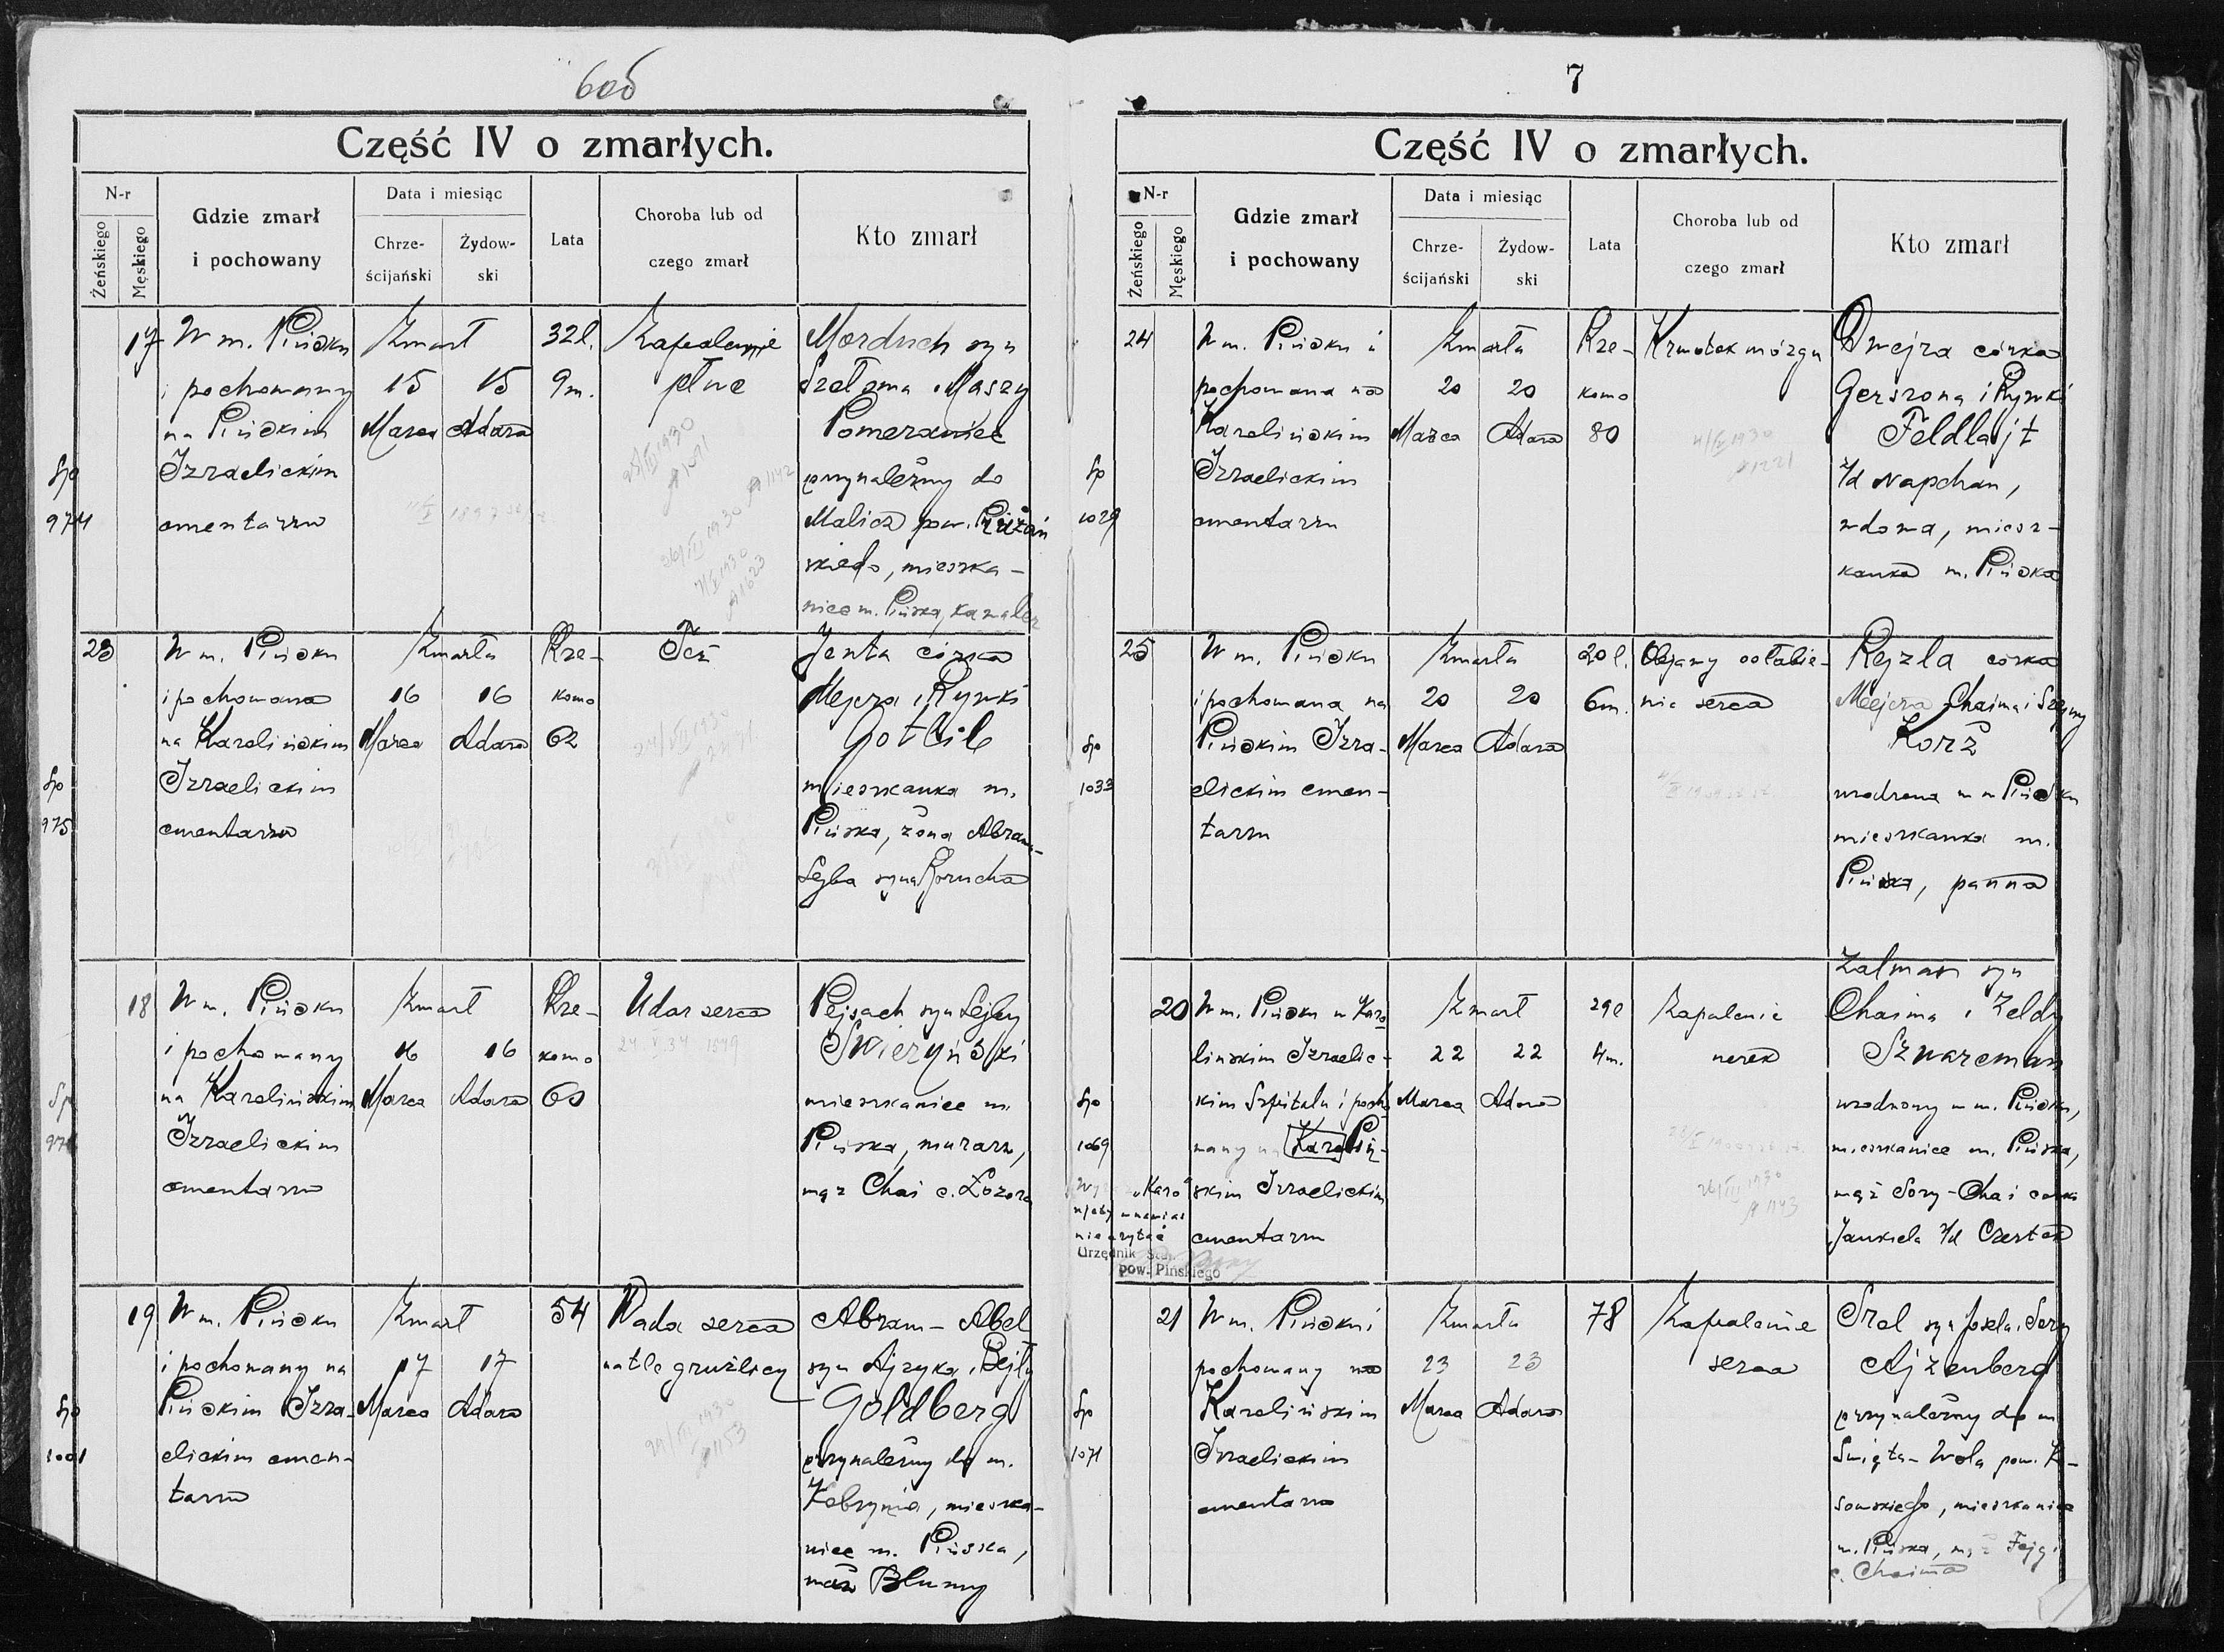 606
Część IV o zmarłych.
N-r
Żeńskiego
Męskiego
Gdzie zmarł
i pochowany
Data i miesiąc
Chrze-
ścijański
Żydow-
ski
Lata
Choroba lub od
czego zmarł
Kto zmarł
17
W m. Pińsku
i pochowany
na Pińskim
Izraelickim
cmentarzu
Zmarł
15 15
Marca Adara
32 l.
9 m.
Zapalenie
płuc
Morduch syn
Szełoma i Maszy
Pomeraniec
przynależny do
Malicz pow. Pružań
skiego, mieszka-
niec m. Pińska, kawaler
Sp
974
23
W m. Pińsku
i pochowana
na Karolińskim
Izraelickim
cmentarzu
Zmarła
16 16
Marca Adara
Rze-
komo
62
Jenta córka
Mejera i Rywki
Gotlib
mieszkanka m.
Pińska, żona Abram-
Lejba syna Borucha
Sp
975
18
W m. Pińsku
i pochowany
na Karolińskim
Izraelickim
cmentarzu
Zmarł
16 16
Marca Adara
Rze-
komo
60
Udar serca
24 V.34 1549
Pejsach syn Lejby
Świeżyński
mieszkaniec m.
Pińska, murarz,
mąż Chai c. Łozera
Sp
19
W m. Pińsku
i pochowany na
Pińskim Izra-
elickim cmen-
tarzu
Zmarł
17 17
Marca Adara
54
Wada serca
na tle gruźlicy
Abram-Abel
syn Ajzyka i Bejły
Goldberg
przynależny do m.
Kobrynia, mieszka-
niec m. Pińska,
mąż Blumy
Sp
1001
7
Część IV o zmarłych.
N-r
Żeńskiego
Męskiego
Gdzie zmarł
i pochowany
Data i miesiąc
Chrze-
ścijański
Żydow-
ski
Lata
Choroba lub od
czego zmarł
Kto zmarł
24
W m. Pińsku i
pochowana na
Karolińskim
Izraelickim
cmentarzu
Zmarła
20 20
Marca Adara
Rze-
komo
80
Krwotok mózgu
Dwejra córka
Gerszona i Rywki
Feldlajt
z/d Napchan,
wdowa, miesz-
kanka m. Pińska
Sp
1029
25
W m. Pińsku
i pochowana na
Pińskim Izra-
elickim cmen-
tarzu
Zmarła
20 20
Marca Adara
20 l.
6 m.
Objawy osłabie-
nie serca
Rejzla córka
Mejera Chaima i
Korż
urodzona w m Pińsku
mieszkanka m.
Pińska, panna
Sp
1033
20
W m. Pińsku w Karo
lińskim Izraelic-
kim Szpitalu i pocho
wany na Karoliń-
skim Izraelickim
cmentarzu
Zmarł
22 22
Marca Adara
29 l
4 m.
Zapalenie
nerek
Zalman syn
Chaima i Zeldy
Szwarcman
urodzony w m. Pińsku,
mieszkaniec m. Pińska,
mąż Sory-Chai córki
Jankiela z/d Czertok
Sp
1069
"Karo"
nie czytać
Urzędnik
pow. Pińskiego
21
W m. Pińsku i
pochowany na
Karolińskim
Izraelickim
cmentarzu
Zmarła
23 23
Marca Adara
78
Zapalenie
serca
Srol syn Josela i Sory
Ajzenberg
przynależny do m
Święta-Wola pow. Ko-
sowskiego, mieszkaniec
m. Pińska, mąż Fejgi
c. Chaima
Sp
1071